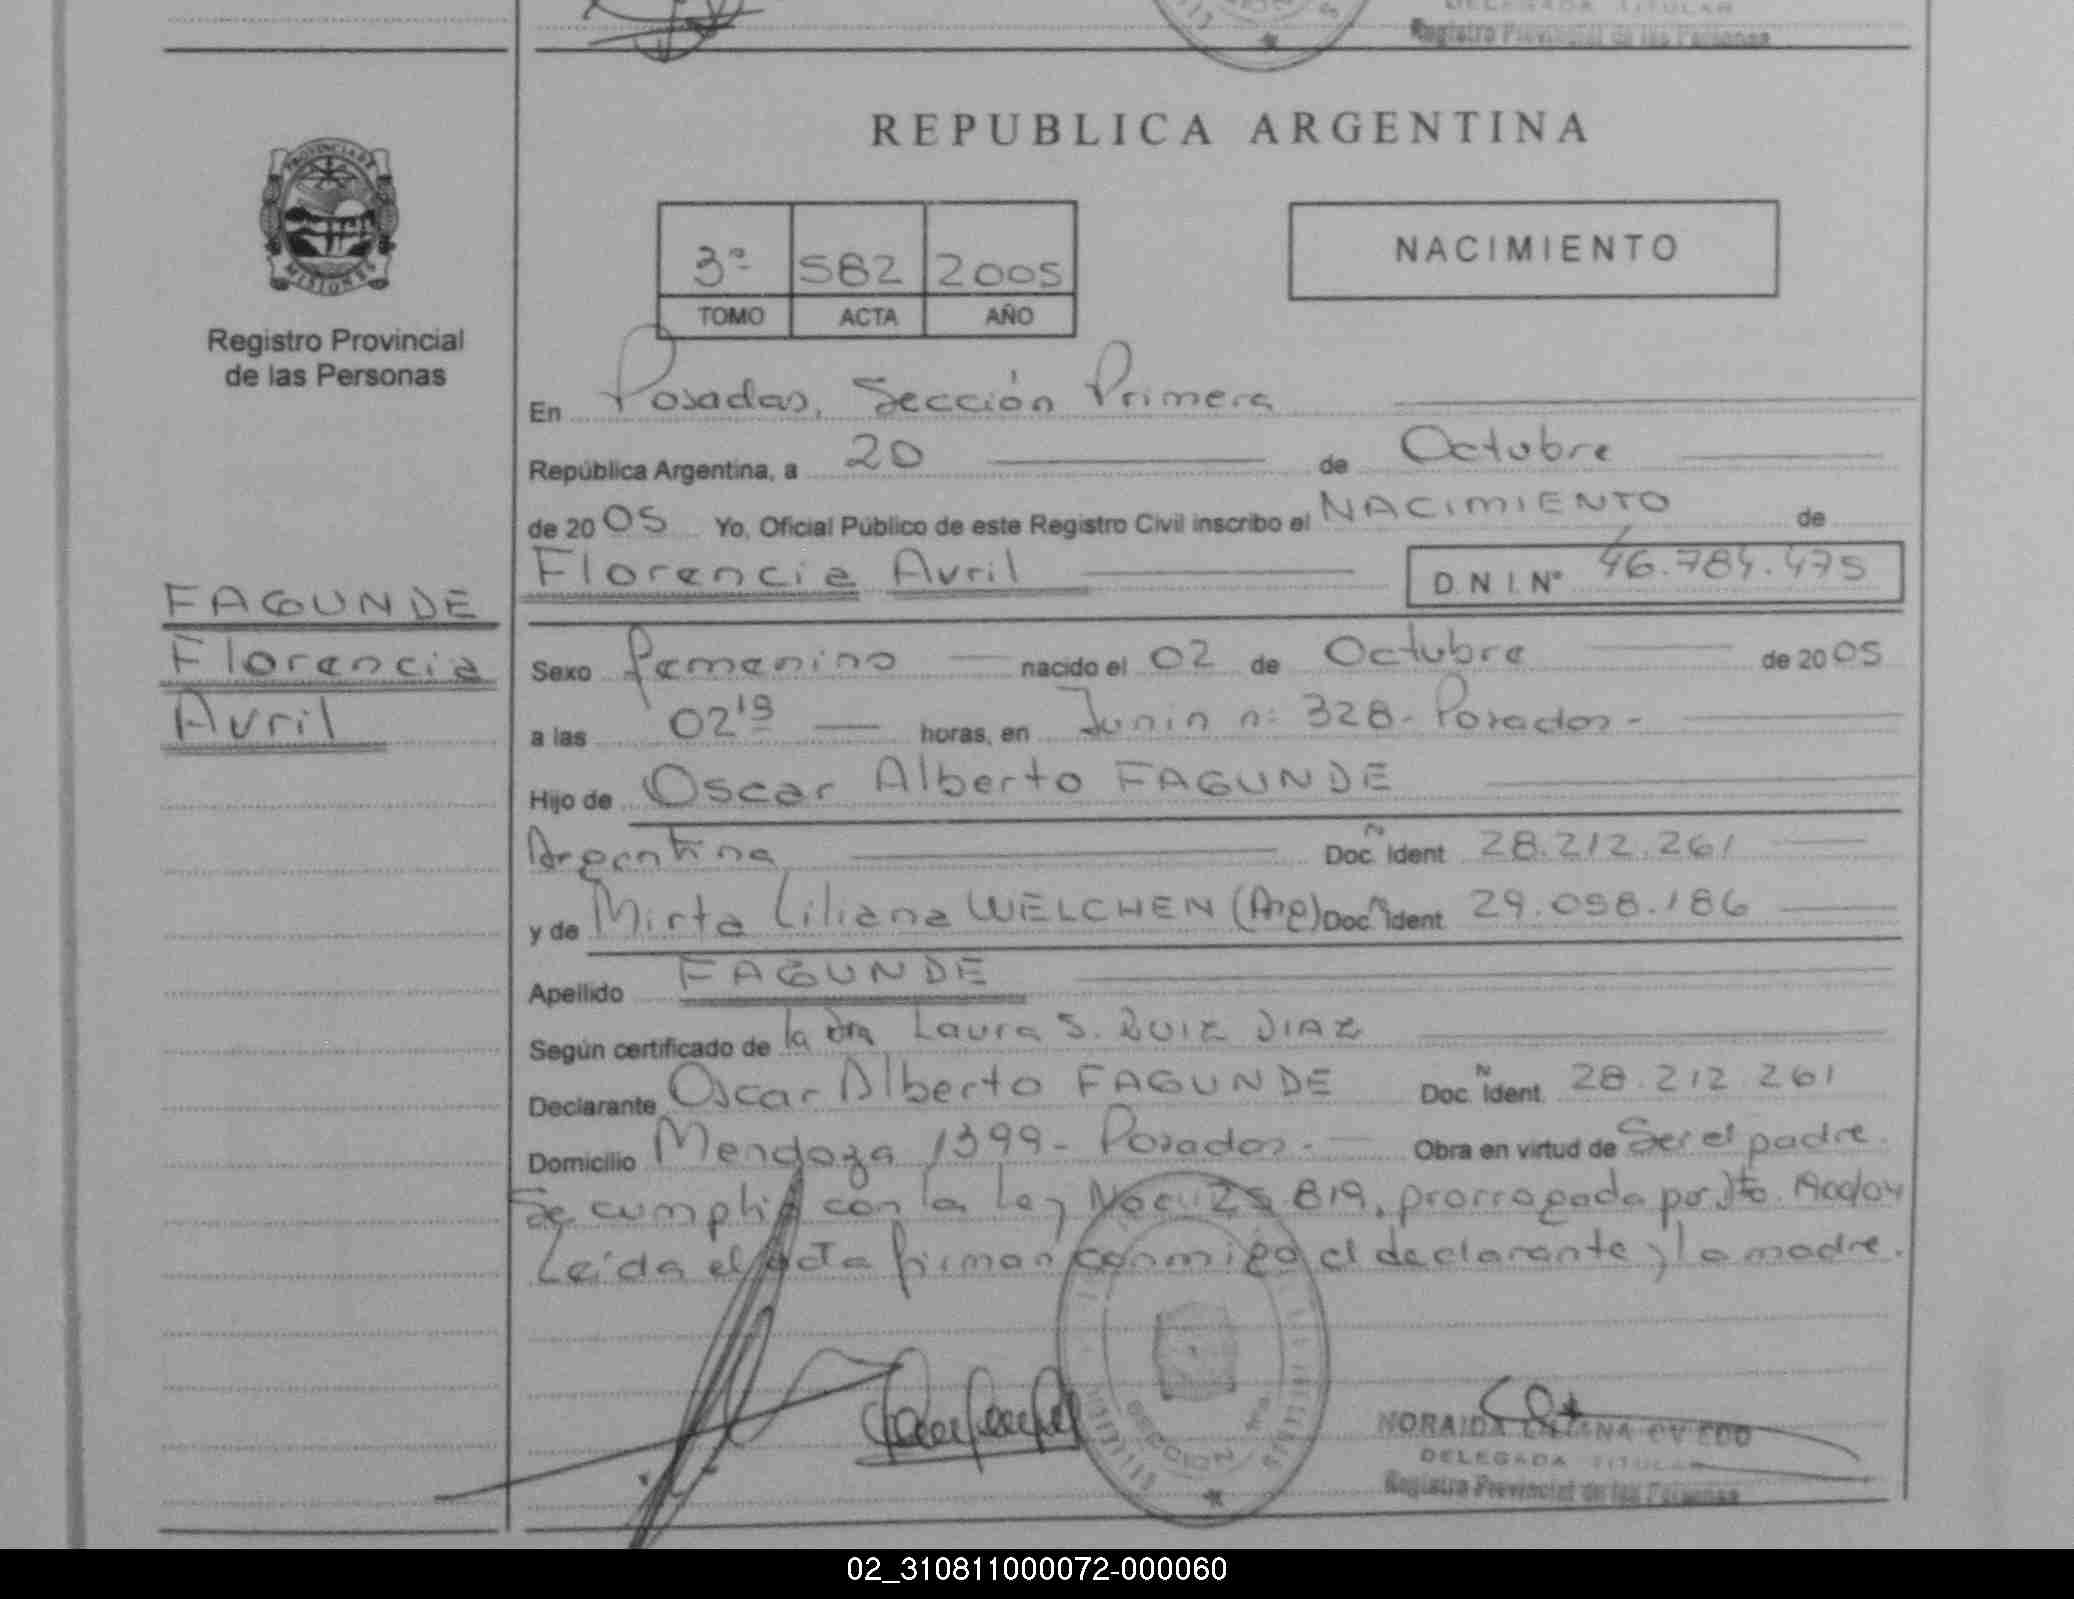 Registro Provincial de las Personas
REPUBLICA ARGENTINA
PROVINCIA DE
MISIONES
Registro Provincial
de las Personas
3º 582 2005
TOMO ACTA AÑO
NACIMIENTO
En Posadas, Sección Primera
República Argentina, a 20 de Octubre
de 2005 Yo, Oficial Público de este Registro Civil inscribo el NACIMIENTO de
Florencia Avril
D.N.I.Nº 46.784.475
FAGUNDE
Florencia
Avril
Sexo femenino nacido el 02 de Octubre de 2005
a las 02 19 horas, en Junin nº 328- Posadas-
Hijo de Oscar Alberto FAGUNDE
Argentina Doc. Ident 28.212.261
y de Mirta Liliana WELCHEN (Arg) Doc. Ident 29.098.186
Apellido FAGUNDE
Según certificado de la Dra Laura S. RUIZ DIAZ
Declarante Oscar Alberto FAGUNDE Doc. Ident. 28.212.261
Domicilio Mendoza 1399- Posadas.- Obra en virtud de Ser el padre.
Se cumplió con la Ley Nac. 25.819, prorrogada por Dto.
Leída el acta firman conmigo el declarante y la madre.
SECCION 1ra
NORAIDA LILIANA OVIEDO
DELEGADA TITULAR
Registro Provincial de las Personas
02_310811000072-000060